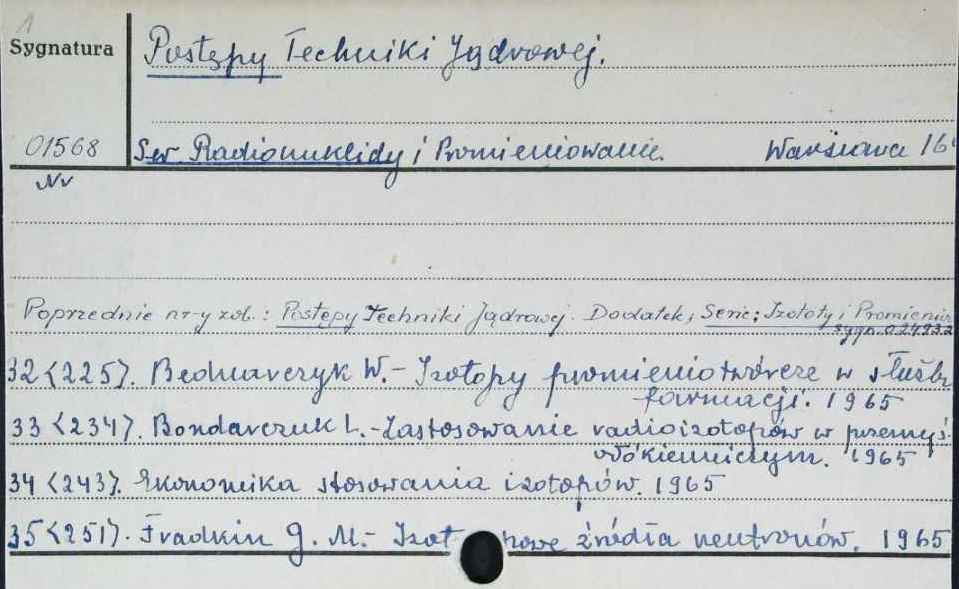 1
Sygnatura
Postępy Techniki Jądrowej.
01568
Ser Radionuklidy i Promieniowanie. Warszawa 16
Nr
Poprzednie nr-y zob.: Postępy Techniki Jądrowej. Dodatek, Serie: Izotopy i Promienio
sygn. 024932
32 <225>. Bednarczyk W.- Izotopy promieniotwórcze w służbie
farmacji. 1965
33 <234>. Bondarczuk L.-Zastosowanie radioizotopów w przemyś.
włókienniczym. 1965
34 <243>. Ekonomika stosowania izotopów. 1965
35 <251>. Fradkin G. M.- Izot powe źródła neutronów. 1965